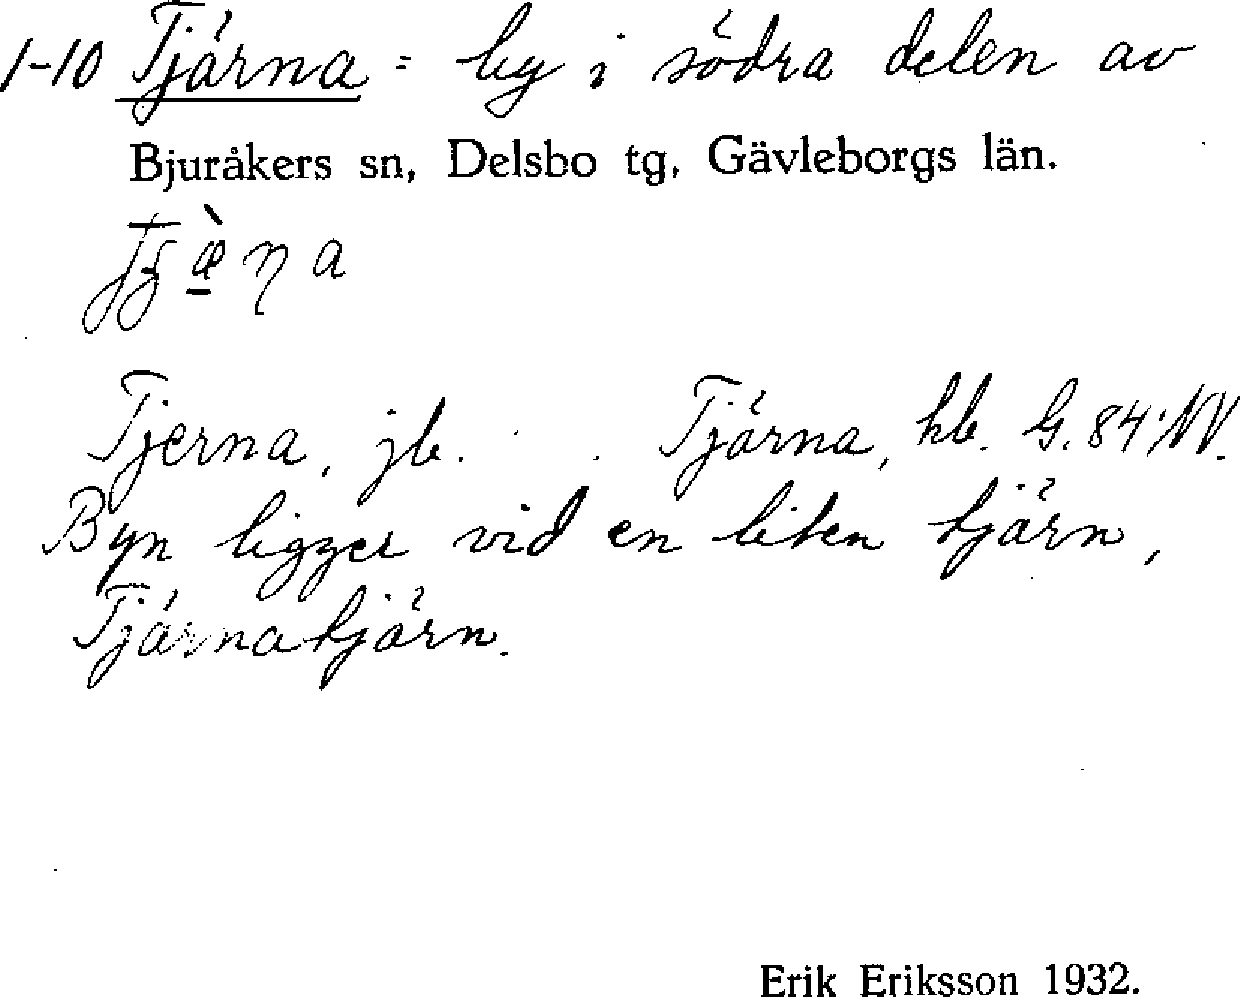 1-10 Tjärna = by i södra delen av
Bjuråkers sn, Delsbo tg, Gävleborgs län.
Tjerna, jb. Tjärna, hb. G. 84 NV.
Byn ligger vid en liten tjärn,
Tjärnatjärn.
Erik Eriksson 1932.